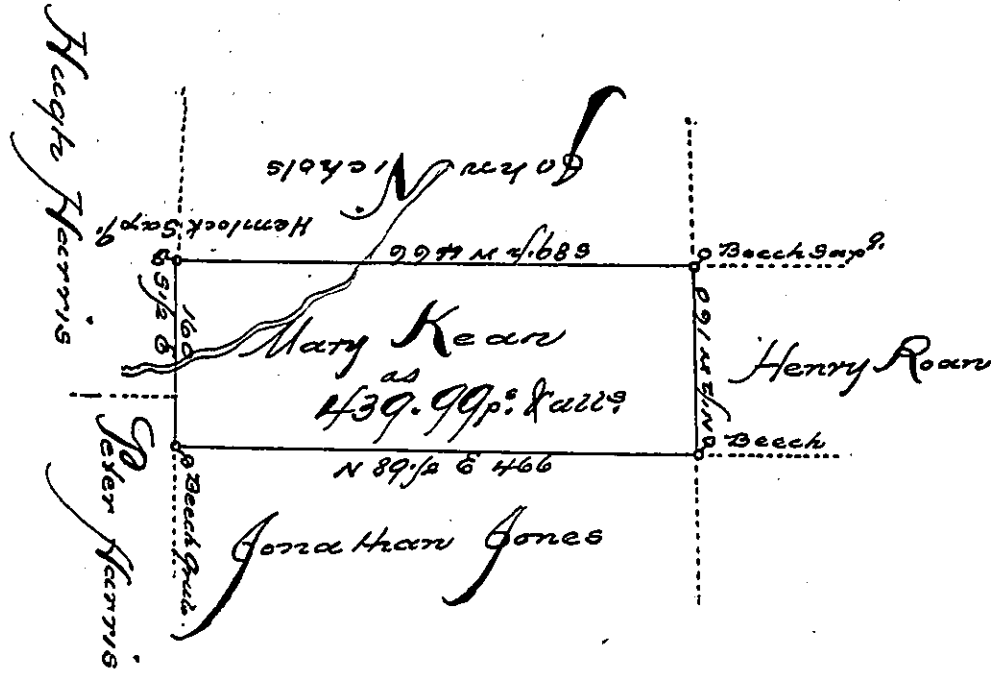 Hugh Harris
John Nichols
Hemlock Sapg.
S 89½ W 466
Beech Sapg.
S½ E
160
Mary Kean
as
439.99 ps. & alls.
N½ W 160
Henry Roan
Beech
N 89½ E 466
Peter Harris
Beech Grub.
Jonathan Jones